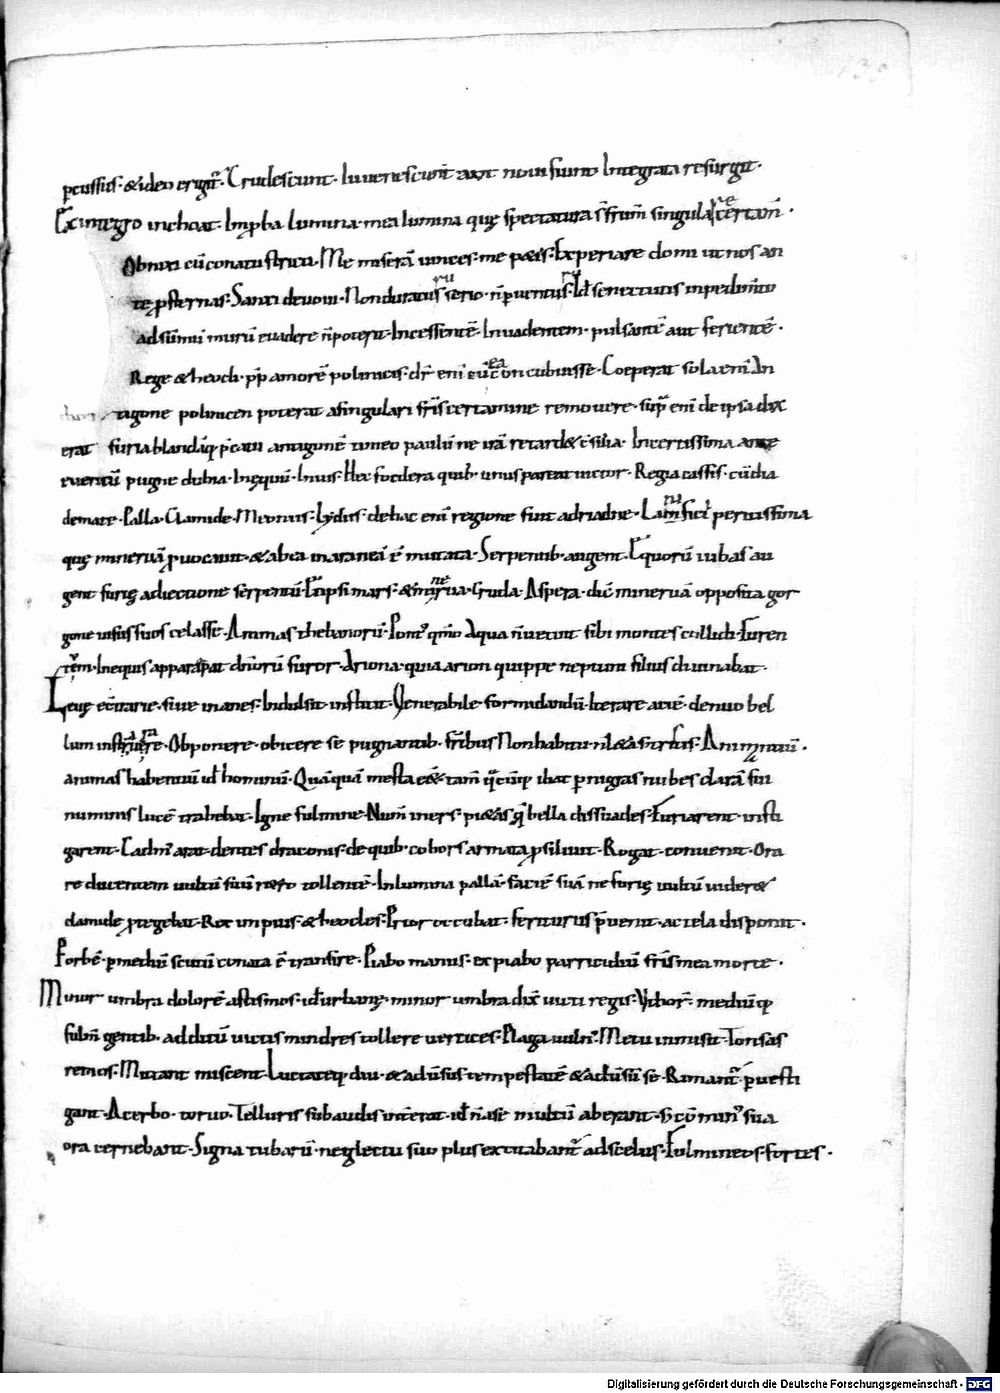 pcussus · & ideo erigit̄ · Crudescunt · Iuuenescunt aut noui fiunt Integrata resurgit ·
Ex integro inchoat · Improba lumina · mea lumina quę spectatura s̄ frum̄ singula certam̄ ·
Obnixi cū conatu stricti · Me miserā uinces · me p&is · Experiare domi ut nos an
te psternas · Santi deuoui · Non duratus serio · n̄ puentus · Id senectutis inpedim̄to
ad sūmū murū euadere n̄ poterit · Incessentē · Inuadentem · pulsantē aut ferientē ·
Rege & heocli · pp̄ amorē polinicis · dr̄ enī cū ea concubuisse · Coeperat sola enī An
tigone polinicen poterat a singulari fr̄is certamine remouere · sup̄ enī de ipsa dix
erat furia blandaq; antigonē timeo paulū ne nr̄ā retard& ē filia · Incertissima ante
euentū pugne dubia · Inęquū · Inuis · Hec foedera quib; unus pareat uictor · Regia cassis · cū dia
demate · Palla · Clamide · Meonus · Lydus · de hac enī regione fuit adriadne · Lanifici peritissima
quę mineruā puocauit · & ab ea in araneā ē mutata · Serpentib; augent · Equorū iubas au
gent furię adiectione serpentū · Et ipsi mars · & minerua · Cruda · Aspera · dū mineruā opposita gor
gone uisus suos celasse · Animas thebanorū · Pont; qm̄o Aqua n̄ uetuit sibi montes collidi · Furen
tem · Inequis apparabat duorū furor · Ariona · quia arion quippe neptuni filius diuinabat ·
Leuę ec̄trarie · siue inanes · Indulsit instituit · Venerabile formidandū · Iterare acie · denuo bel
lum instruere · Obponere · obicere se pugnantib; · fr̄ibus Non habitu nl̄ Animantū ·
animas habentiū ul̄ hominū · Quāquā mesta tam̄ ibat p nigras nubes clarā sui
numinis lucē trahebat · Igne fulmine · Num̄ iners · pi&as q̄ bella dissuades · Furiarent · insti
garent · Cadm̄ arat dentes draconis · de quib; cohors armata psiliuit · Rogat · conuenit · Ora
re ducentem uultū suū tollentē · In lumina pallā · faciē suā ne furię uultū uider&
clamide ptegebat · Rex impius · & heocles · Prior occubat · feriturus p̄uenit · ac tela disponit ·
Forbē · p mediū scutū conata ē transire · Piabo manus · expiabo parricidiū fr̄is mea morte ·
Minor umbra dolorē astismos · id urbanę · minor umbra dix̄ uicti regis · mediūq;
fubn̄ gentib; · additū uictis minores tollere uertices · Plaga uuln̄ · Metu inmisit · Tonsas
remos · Mutant miscent · Luctateq; diu · & aduersus tempestatē & aduersū se · Rimant̄ · p uesti
gant · Acerbo · toruo · Telluris subaudis incerat · ul̄ n̄ a se multū aberant · s; comin; sua
ora cernebant · Signa tubarū · neglectu suo plus excitabant̄ ad scelus · Fulmineos · fortes ·
Digitalisierung gefördert durch die Deutsche Forschungsgemeinschaft - DFG